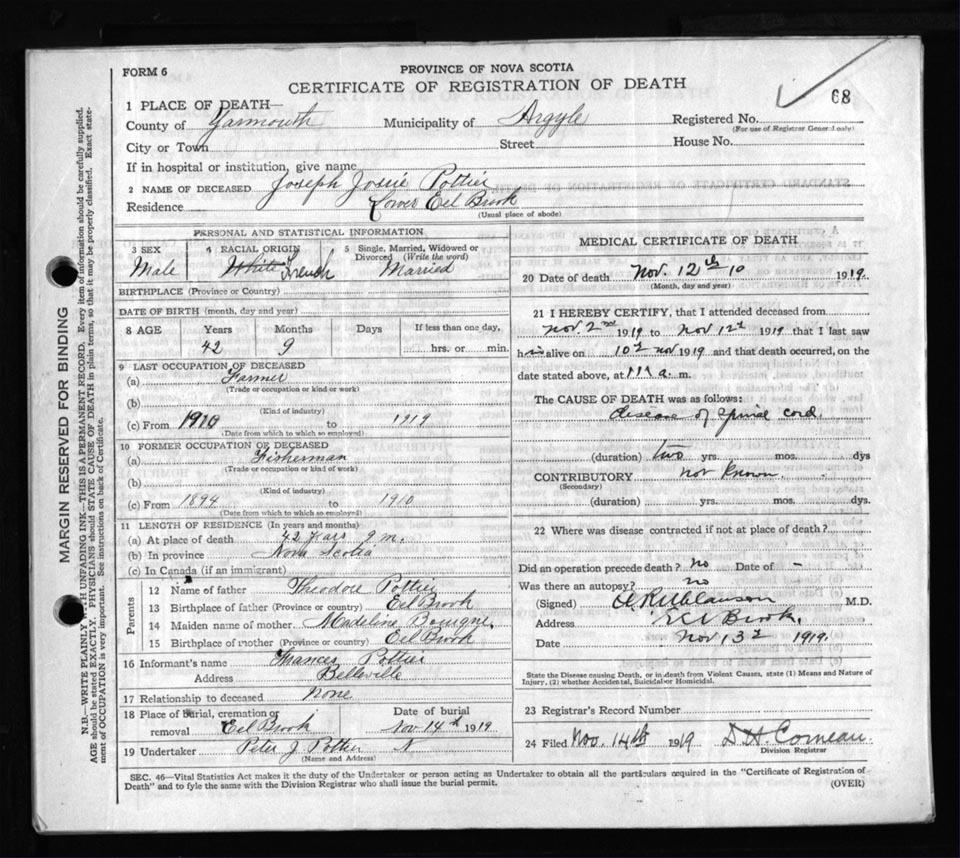 FORM 6
PROVINCE OF NOVA SCOTIA
CERTIFICATE OF REGISTRATION OF DEATH
68
1 PLACE OF DEATH—
County of Yarmouth Municipality of Argyle Registered No.
(For use of Registrar General only)
City or Town Street House No.
If in hospital or institution, give name
2 NAME OF DECEASED Joseph Josie Pottier
Residence Lower Eel Brook
(Usual place of abode)
PERSONAL AND STATISTICAL INFORMATION
3 SEX 4 RACIAL ORIGIN 5 Single, Married, Widowed or Divorced (Write the word)
Male White French Married
BIRTHPLACE (Province or Country)
DATE OF BIRTH (month, day and year)
8 AGE Years Months Days If less than one day,
42 9 hrs. or min.
9 LAST OCCUPATION OF DECEASED
(a) Farmer
(Trade or occupation or kind or work)
(b)
(Kind of industry)
(c) From 1910 to 1919
(Date from which to which so employed)
10 FORMER OCCUPATION OF DECEASED
(a) Fisherman
(Trade or occupation or kind of work)
(b)
(Kind of industry)
(c) From 1894 to 1910
(Date from which to which so employed)
11 LENGTH OF RESIDENCE (In years and months)
(a) At place of death 42 years 9 m.
(b) In province Nova Scotia
(c) In Canada (if an immigrant)
Parents
12 Name of father Theodore Pottier
13 Birthplace of father (Province or country) Eel Brook
14 Maiden name of mother Madeline Bourque
15 Birthplace of mother (Province or country) Eel Brook
16 Informant's name Frances Pottier
Address Belleville
17 Relationship to deceased None
18 Place of burial, cremation or removal Eel Brook Date of burial Nov 14th 1919
19 Undertaker Peter J. Pottier
(Name and Address)
MEDICAL CERTIFICATE OF DEATH
20 Date of death Nov. 12th 10 1919
(Month, day and year)
21 I HEREBY CERTIFY, that I attended deceased from
Nov. 2nd 1919 to Nov 12th 1919 that I last saw
h is alive on 10th Nov 1919 and that death occurred, on the
date stated above, at a. m.
The CAUSE OF DEATH was as follows:
disease of spinal cord
(duration) two yrs. mos. dys
CONTRIBUTORY not known
(Secondary)
(duration) yrs. mos. dys.
22 Where was disease contracted if not at place of death?
Did an operation precede death? no Date of -
Was there an autopsy? no
(Signed) M.D.
Address Eel Brook.
Date Nov 13th 1919.
State the Disease causing Death, or in death from Violent Causes, state (1) Means and Nature of
Injury, (2) whether Accidental, Suicidal or Homicidal.
23 Registrar's Record Number
24 Filed Nov. 14th 1919 D. H. Comeau.
Division Registrar
SEC. 46—Vital Statistics Act makes it the duty of the Undertaker or person acting as Undertaker to obtain all the particulars required in the "Certificate of Registration of
Death" and to fyle the same with the Division Registrar who shall issue the burial permit.
(OVER)
MARGIN RESERVED FOR BINDING
N.B.—WRITE PLAINLY WITH UNFADING INK—THIS IS A PERMANENT RECORD. Every item of information should be carefully supplied.
AGE should be stated EXACTLY. PHYSICIANS should STATE CAUSE OF DEATH in plain terms, so that it may be properly classified. Exact state-
ment of OCCUPATION is very important. See instructions on back of Certificate.